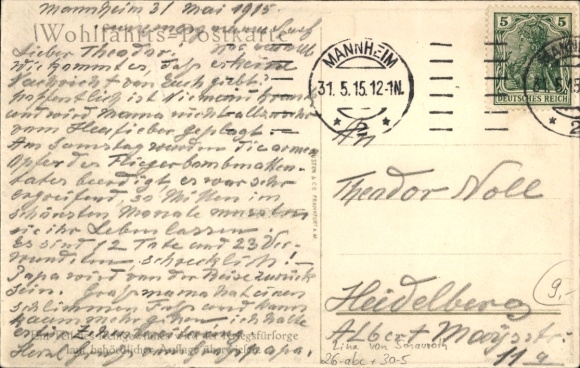 Mannheim 31 Mai 1915.
Wohlfahrts=Postkarte
Lieber Theodor!
wie kommt es, daß er keine
Nachricht von Euch gibt?
Hoffentlich ist niemand krank
und wird Mama nicht allzusehr
vom Heufieber geplagt —
Am Samstag wurden die armen
Opfer des Fliegerbombenatten-
tates beerdigt es war sehr
ergreifend, so mitten im
schönsten Monate mussten
sie ihr Leben lassen.
Es sind 12 Tote und 23 Ver-
wundeten schrecklich! —
Papa wird von der Reise zurück
sein. Grossmama hat einen
schlimmen Fuß und kann
kaum mehr gehen
Kriegsfürsorge
laut behördlicher Auflage überwiesen
Herzl.
MANNHEIM
31.5.15.12-1N.
* 2 *
5 5
DEUTSCHES REICH
MANNH
An
Theodor Noll
Heidelberg
Albert Maysstr.
11 a
9.-
FRANKFURT A.M.
Lina von Schauroth
26-abc + 30-5